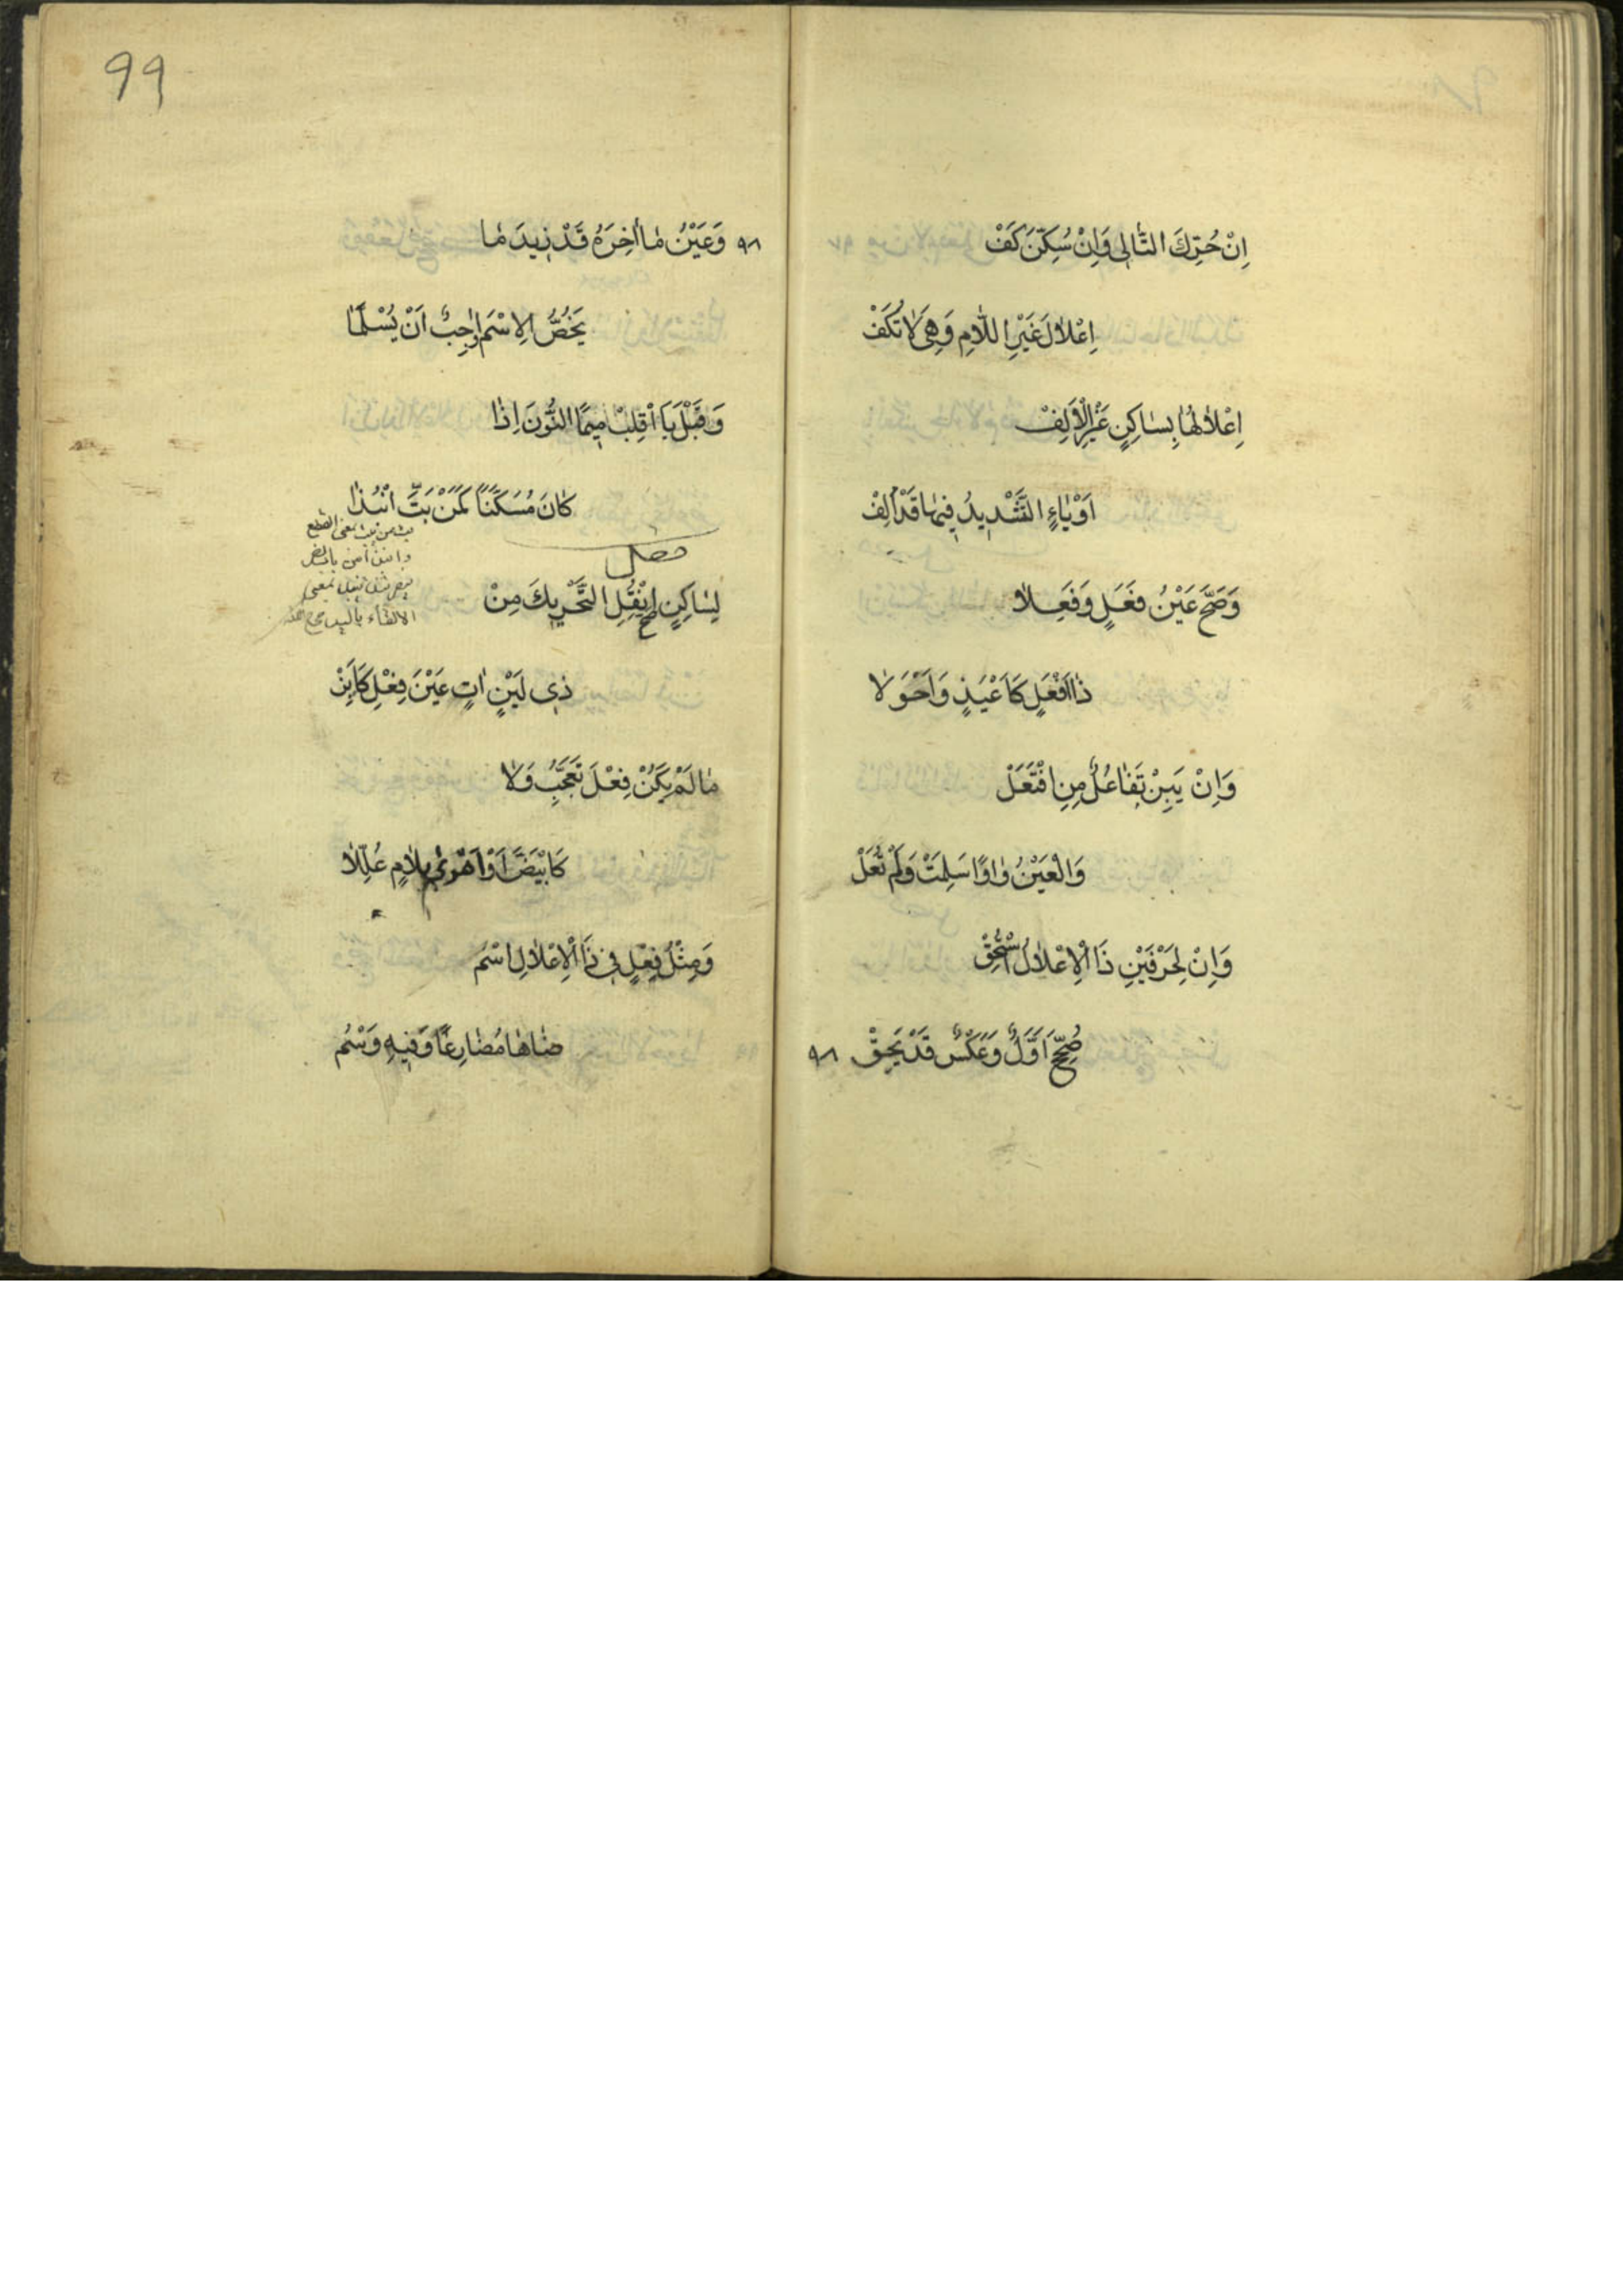 اِنْ حُرِّكَ التَّالِى وَاِنْ سُكِّنَ كَفْ
اِعْلَالَ غَيْرِ اللَّامِ وَهِىَ لَا تُكَفْ
اِعْلَالُهَا بِسَاكِنٍ غَيْرِ الْاَلِفْ
اَوْ يَاءٍ التَّشْدِيدُ فِيهَا قَدْ اُلِفْ
وَصَحَّ عَيْنُ فَعَلٍ وَفَعِلَا
ذَا اَفْعَلٍ كَاَغْيَدٍ وَاَحْوَلَا
وَاِنْ يَبِنْ تَفَاعُلٌ مِنِ افْتَعَلْ
وَالْعَيْنُ وَاوًا سَلِمَتْ وَلَمْ تُعَلْ
وَاِنْ لِحَرْفَيْنِ ذَا الْاِعْلَالُ اسْتُحِقْ
صُحِّحَ اَوَّلٌ وَعَكْسٌ قَدْ يَحِقْ ٩٨
٩٩
٩٨ وَعَيْنُ مَا اٰخِرَهُ قَدْ زِيدَ مَا
يَخُصُّ الِاسْمَ وَاجِبٌ اَنْ يَسْلَمَا
وَقَبْلَ بَا اقْلِبْ مِيمًا النُّونَ اِذَا
كَانَ مُسَكَّنًا كَمَنْ بَتَّ انْبُذَا
بت من بت بمعنى القطع
بمعنى
الالقاء باليد
فصل
لِسَاكِنٍ صَحَّ انْقُلِ التَّحْرِيكَ مِنْ
ذِى لَيْنٍ اٰتٍ عَيْنَ فِعْلٍ كَاَبِنْ
مَا لَمْ يَكُنْ فِعْلَ تَعَجُّبٍ وَلَا
كَابْيَضَّ اَوْ اَهْوٰى بِلَامٍ عُلِّلَا
وَمِثْلُ فِعْلٍ فِى ذَا الْاِعْلَالِ اسْمُ
ضَاهَا مُضَارِعًا وَفِيهِ وَسْمُ